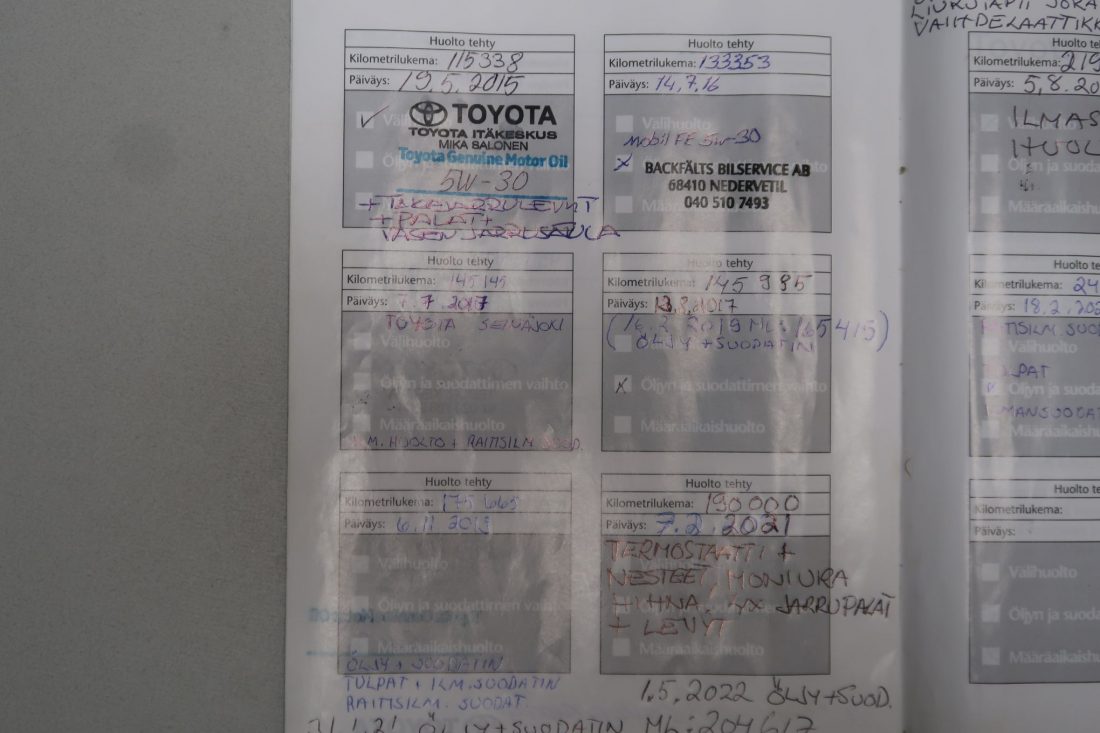 Huolto tehty
Kilometrilukema: 115338
Päiväys: 19.5.2015
TOYOTA
TOYOTA ITÄKESKUS
MIKA SALONEN
Toyota Genuine Motor Oil
5W-30
+ TAKAJARRULEVYT
+ PALAT +
VASEN JARRUSATULA
Huolto tehty
Kilometrilukema: 133353
Päiväys: 14.7.16
Välihuolto
Mobil FE 5W-30
BACKFÄLTS BILSERVICE AB
68410 NEDERVETIL
040 510 7493
Määräaikaishuolto
Huolto tehty
Kilometrilukema: 145145
Päiväys: 7.2017
TOYOTA SEINÄJOKI
Välihuolto
Öljyn ja suodattimen vaihto
Määräaikaishuolto
HUOLTO + RAITISILM. SUOD.
Huolto tehty
Kilometrilukema: 145985
Päiväys: 2017
(16.2.2019 ML: 165415)
ÖLJY + SUODATIN
Öljyn ja suodattimen vaihto
Määräaikaishuolto
Huolto tehty
Kilometrilukema: 175665
Päiväys: 6.11
Välihuolto
Öljyn ja suodattimen vaihto
Määräaikaishuolto
ÖLJY + SUODATIN
TULPAT + ILM.SUODATIN
RAITISILM. SUODAT.
Huolto tehty
Kilometrilukema: 190000
Päiväys: 7.2.2021
TERMOSTAATTI +
NESTEET, MONIURA
HIHNA, 4X JARRUPALAT
+ LEVYT
Määräaikaishuolto
1.5.2022 ÖLJY + SUOD.
ÖLJY + SUODATIN ML: 204617
VAIHDELAATIKK
Huolto te
Kilometrilukema: 219
Päiväys: 5,8.20
Välihuolto
ILMAS
HUOL
Määräaikaishu
Huolto te
Kilometrilukema: 24
Päiväys: 18.2.202
RAITISILM. SUOD
Välihuolto
TULPAT
Öljyn ja suoda
ILMANSUODAT
Määräaikaish
Huolto te
Kilometrilukema:
Päiväys:
Välihuolto
Öljyn ja suoda
Määräaikaish